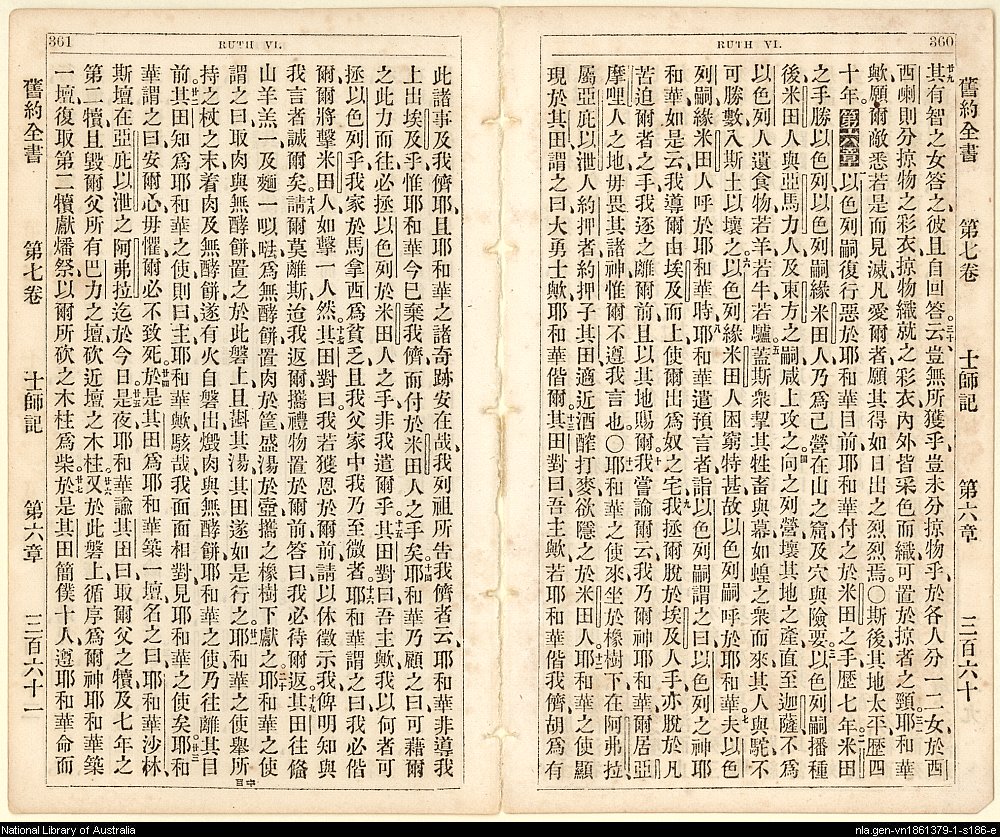 RUTH VI.
360
舊約全書 第七卷 士師記 第六章 三百六十
其有智之女答之彼且自回答云豈無所獲乎豈未分掠物乎於各人分一二女於西
西喇則分掠物之彩衣掠物織就之彩衣內外皆采色而織可置於掠者之頸耶和華
歟願爾敵悉若是而見滅凡愛爾者願其得如日出之烈烈焉〇斯後其地太平歷四
十年第六章以色列嗣復行惡於耶和華目前耶和華付之於米田之手歷七年米田
之手勝以色列以色列嗣緣米田人乃為己營在山之窟及穴與險要以色列嗣播種
後米田人與亞馬力人及東方之嗣咸上攻之向之列營壞其地之產直至迦薩不為
以色列人遺食物若羊若牛若驢蓋斯衆挈其牲畜與幕如蝗之衆而來其人與駝不
可勝數入斯土以壞之以色列緣米田人困窮特甚故以色列嗣呼於耶和華夫以色
列嗣緣米田人呼於耶和華時耶和華遣預言者詣以色列嗣謂之曰以色列之神耶
和華如是云我導爾由埃及而上使爾出為奴之宅我拯爾脫於埃及人手亦脫於凡
苦迫爾者之手我逐之離爾前且以其地賜爾我嘗諭爾云我乃爾神耶和華爾居亞
摩哩人之地毋畏其諸神惟爾不遵我言也〇耶和華之使來坐於橡樹下在阿弗拉
屬亞庇以泄人約押者約押子其田適近酒醡打麥欲隱之於米田人耶和華之使顯
現於其田謂之曰大勇士歟耶和華偕爾其田對曰吾主歟若耶和華偕我儕胡為有
361
RUTH VI.
此諸事及我儕耶且耶和華之諸奇跡安在哉我列祖所告我儕者云耶和華非導我
上出埃及乎惟耶和華今已棄我儕而付於米田人之手矣耶和華乃顧之曰可藉爾
之此力而往必拯以色列於米田人之手非我遣爾乎其田對曰吾主歟我以何者可
拯以色列乎我家於馬拿西為貧乏且我父家中我乃至微者耶和華謂之曰我必偕
爾爾將擊米田人如擊一人然其田對曰我若獲恩於爾前請以休徵示我俾明知與
我言者誠爾矣請爾莫離斯迨我返爾攜禮物置於爾前答曰我必待爾返其田往備
山羊羔一及麵一㕽𠵽為無酵餅置肉於筐盛湯於壺攜之橡樹下獻之耶和華之使
謂之曰取肉與無酵餅置之於此磐上且斟其湯其田遂如是行之耶和華之使舉所
持之杖之末着肉及無酵餅遂有火自磐出燬肉與無酵餅耶和華之使乃往離其目
前其田知為耶和華之使則曰主耶和華歟駭哉我面面相對見耶和華之使矣耶和
華謂之曰安爾心毋懼爾必不致死於是其田為耶和華築一壇名之曰耶和華沙林
斯壇在亞庇以泄之阿弗拉迄於今日是夜耶和華諭其田曰取爾父之犢及七年之
第二犢且毀爾父所有巴力之壇砍近壇之木柱又於此磐上循序為爾神耶和華築
一壇復取第二犢獻燔祭以爾所砍之木柱為柴於是其田簡僕十人遵耶和華命而
舊約全書 第七卷 士師記 第六章 三百六十一
National Library of Australia
nla.gen-vn1861379-1-s186-e